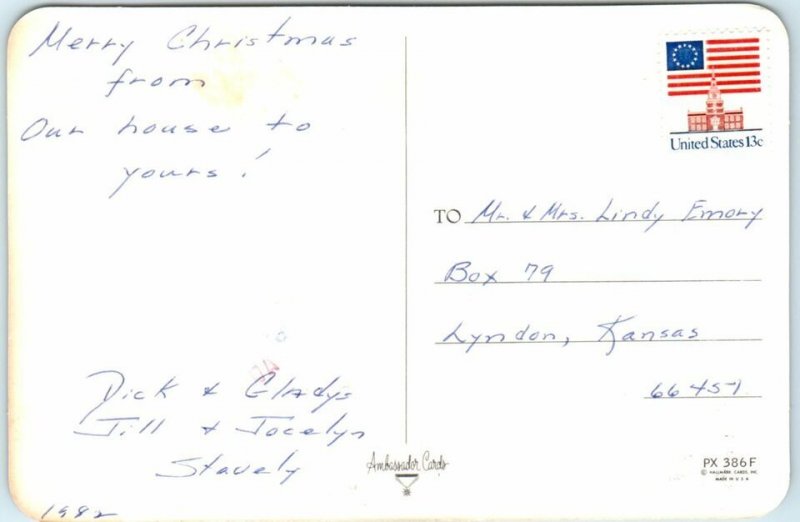 Merry Christmas
from
Our house to
yours!
Dick & Gladys
Jill & Jocelyn
Stavely
1982
United States 13c
TO Mr. & Mrs. Lindy Emory
Box 79
Lyndon, Kansas
66451
Ambassador Cards
PX 386F
© HALLMARK CARDS, INC.
MADE IN U.S.A.